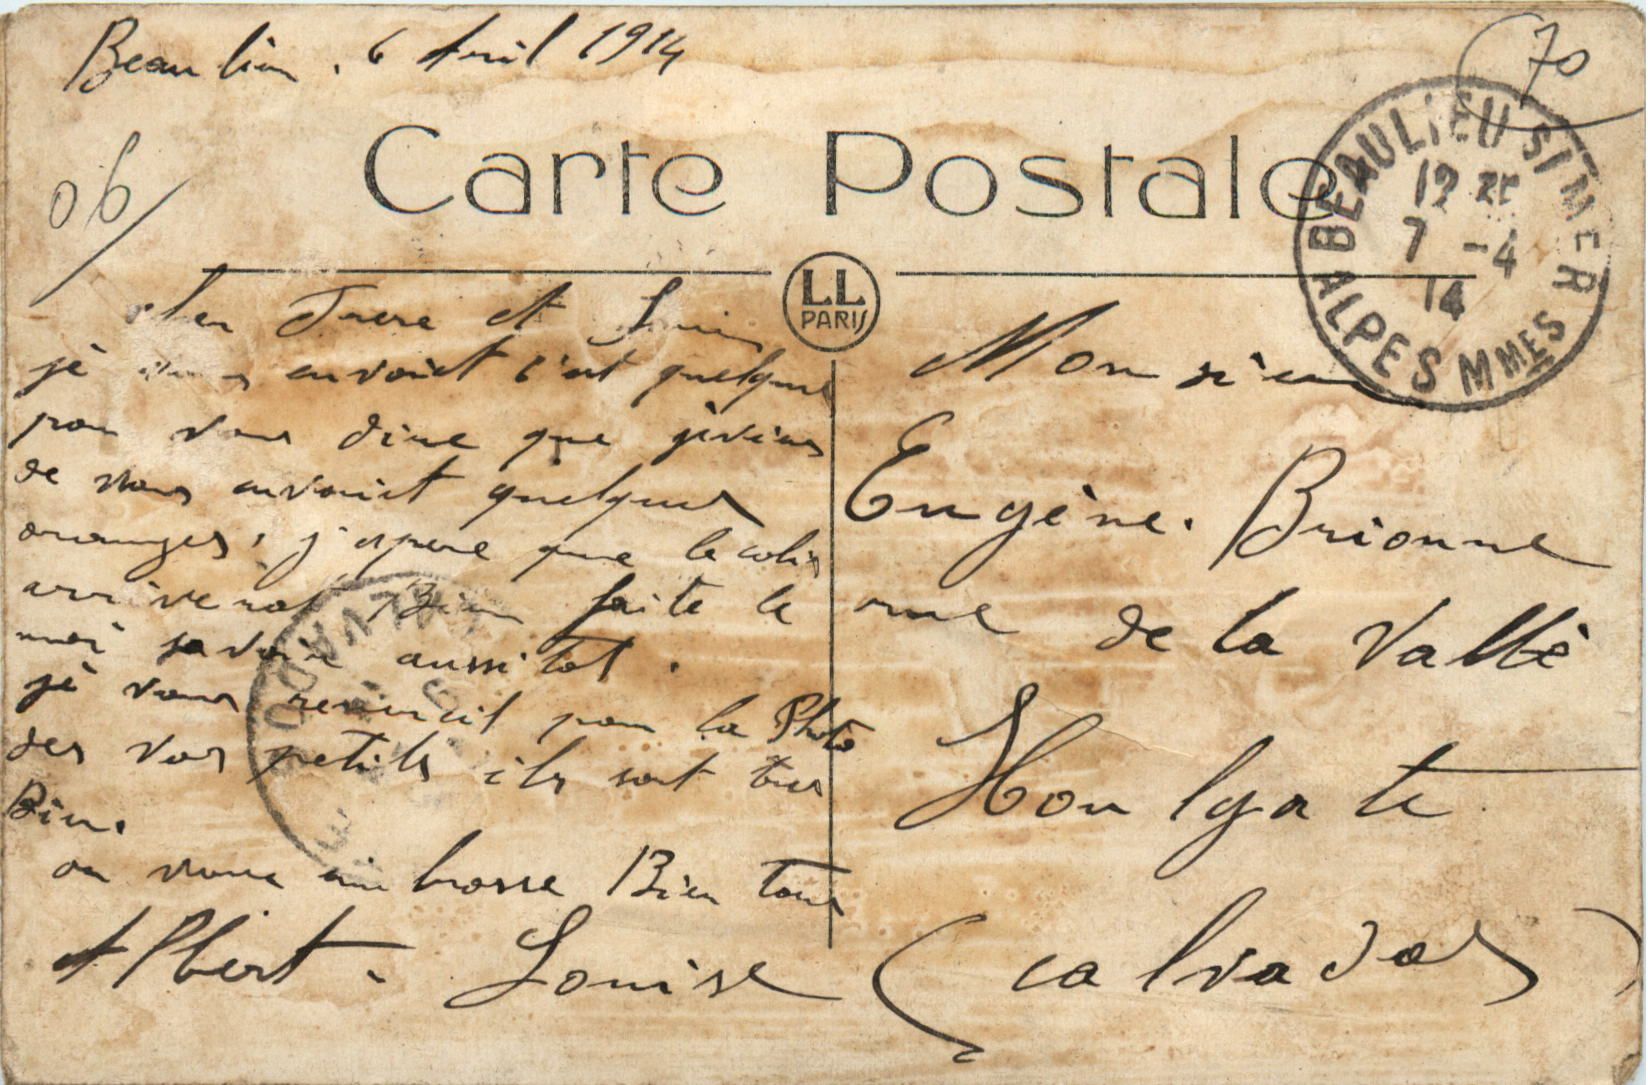 Beaulieu. 6 Avril 1914
70
Carte Postale
BEAULIEU S/MER
12
7 -4
14
ALPES MMES
06
LL
PARIS
cher Frere et
jè vous envoiet s'est quelque
pour vous dire que jèviens
de vous envoiet quelques
oranges, j'espere que le colis
arriverat Bien faite le
moi savoir aussitot.
jè vous remerciet pour la Photo
des vos petits ils sont tres
Bien.
on vous embrasse Bien tous
Albert. Louise
CALVADOS
Monsieur
Eugène. Brionne
rue de la Vallè
Houlgate
(calvados)